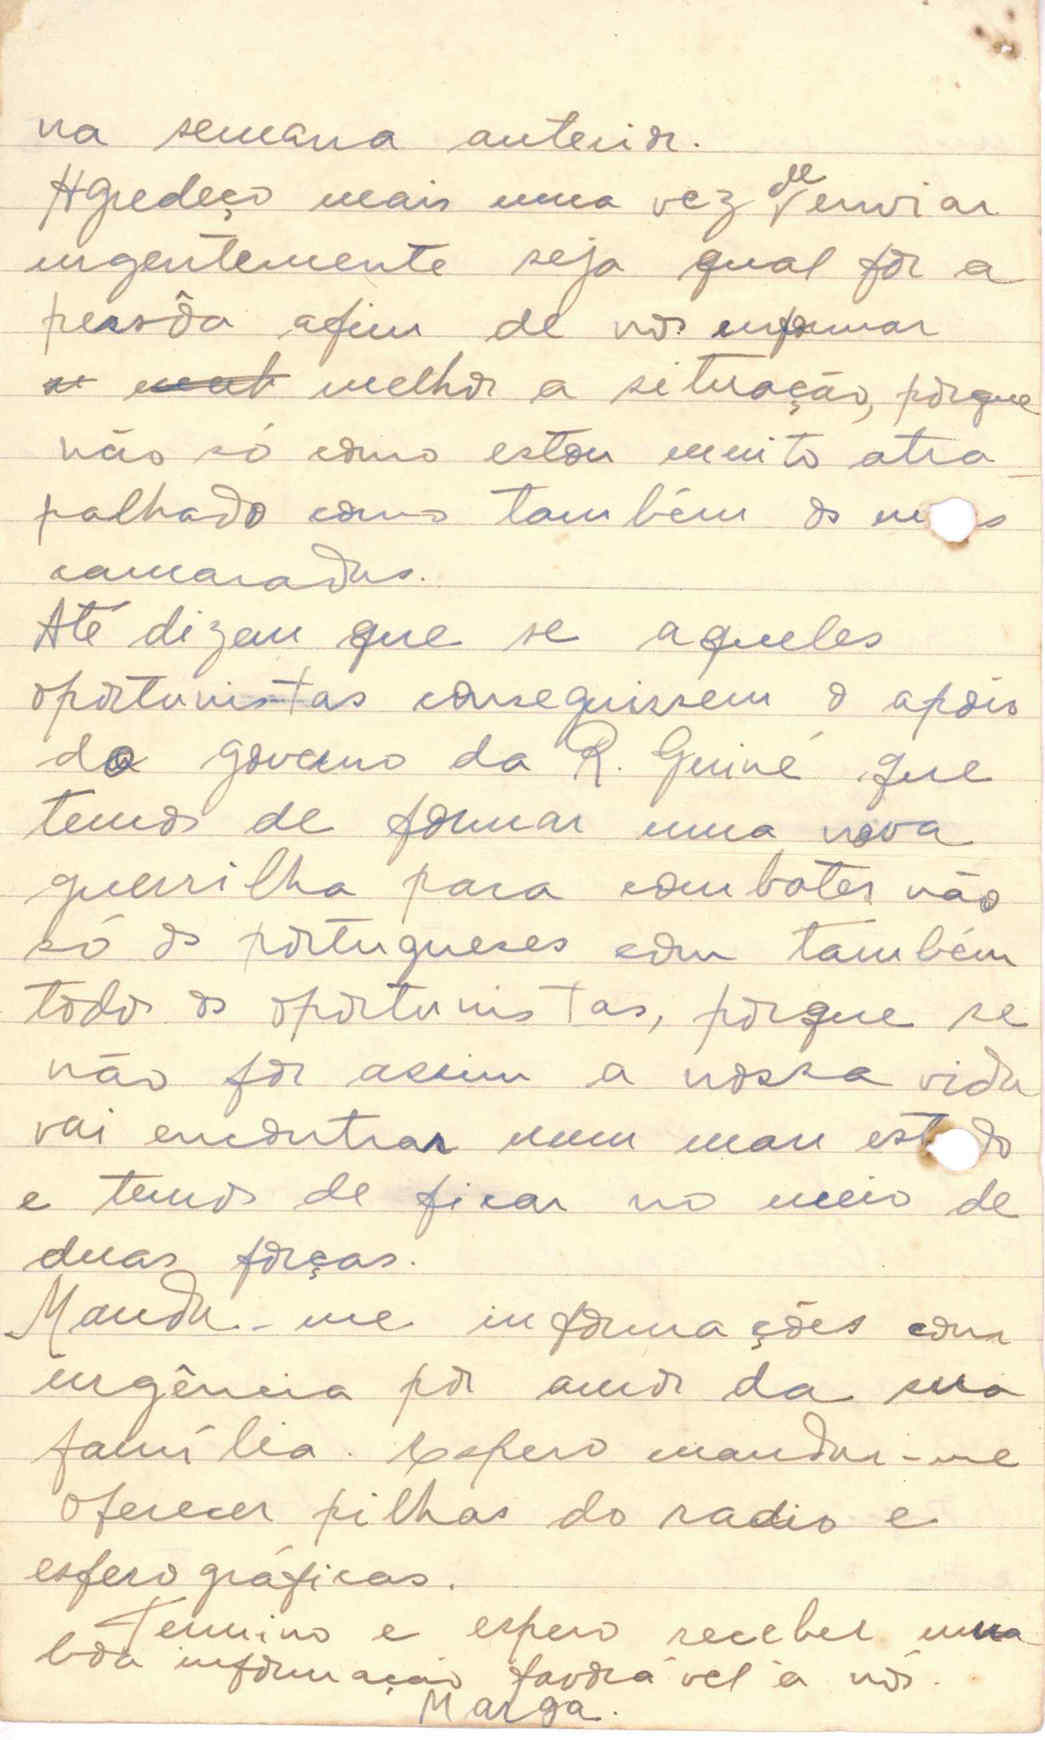 na semana anterior.
Agredeço mais uma vez de enviar
urgentemente seja qual fôr a
pessôa afim de nos informar
melhor a situação, porque
não só como estou muito atra-
palhado como também os m s
camaradas.
Até dizem que se aqueles
oportunistas conseguissem o apoio
do governo da R. Guiné que
temos de formar uma nova
guerrilha para combater não
só os portugueses com também
todos os oportunistas, porque se
não fôr assim a nossa vida
vai encontrar num mau est do
e temos de ficar no meio de
duas forças.
Manda-me informações com
urgência por amor da sua
família. Espero mandar-me
oferecer pilhas do radio e
esferográficas.
Termino e espero receber uma
boa informação favorável à nós.
Marga.